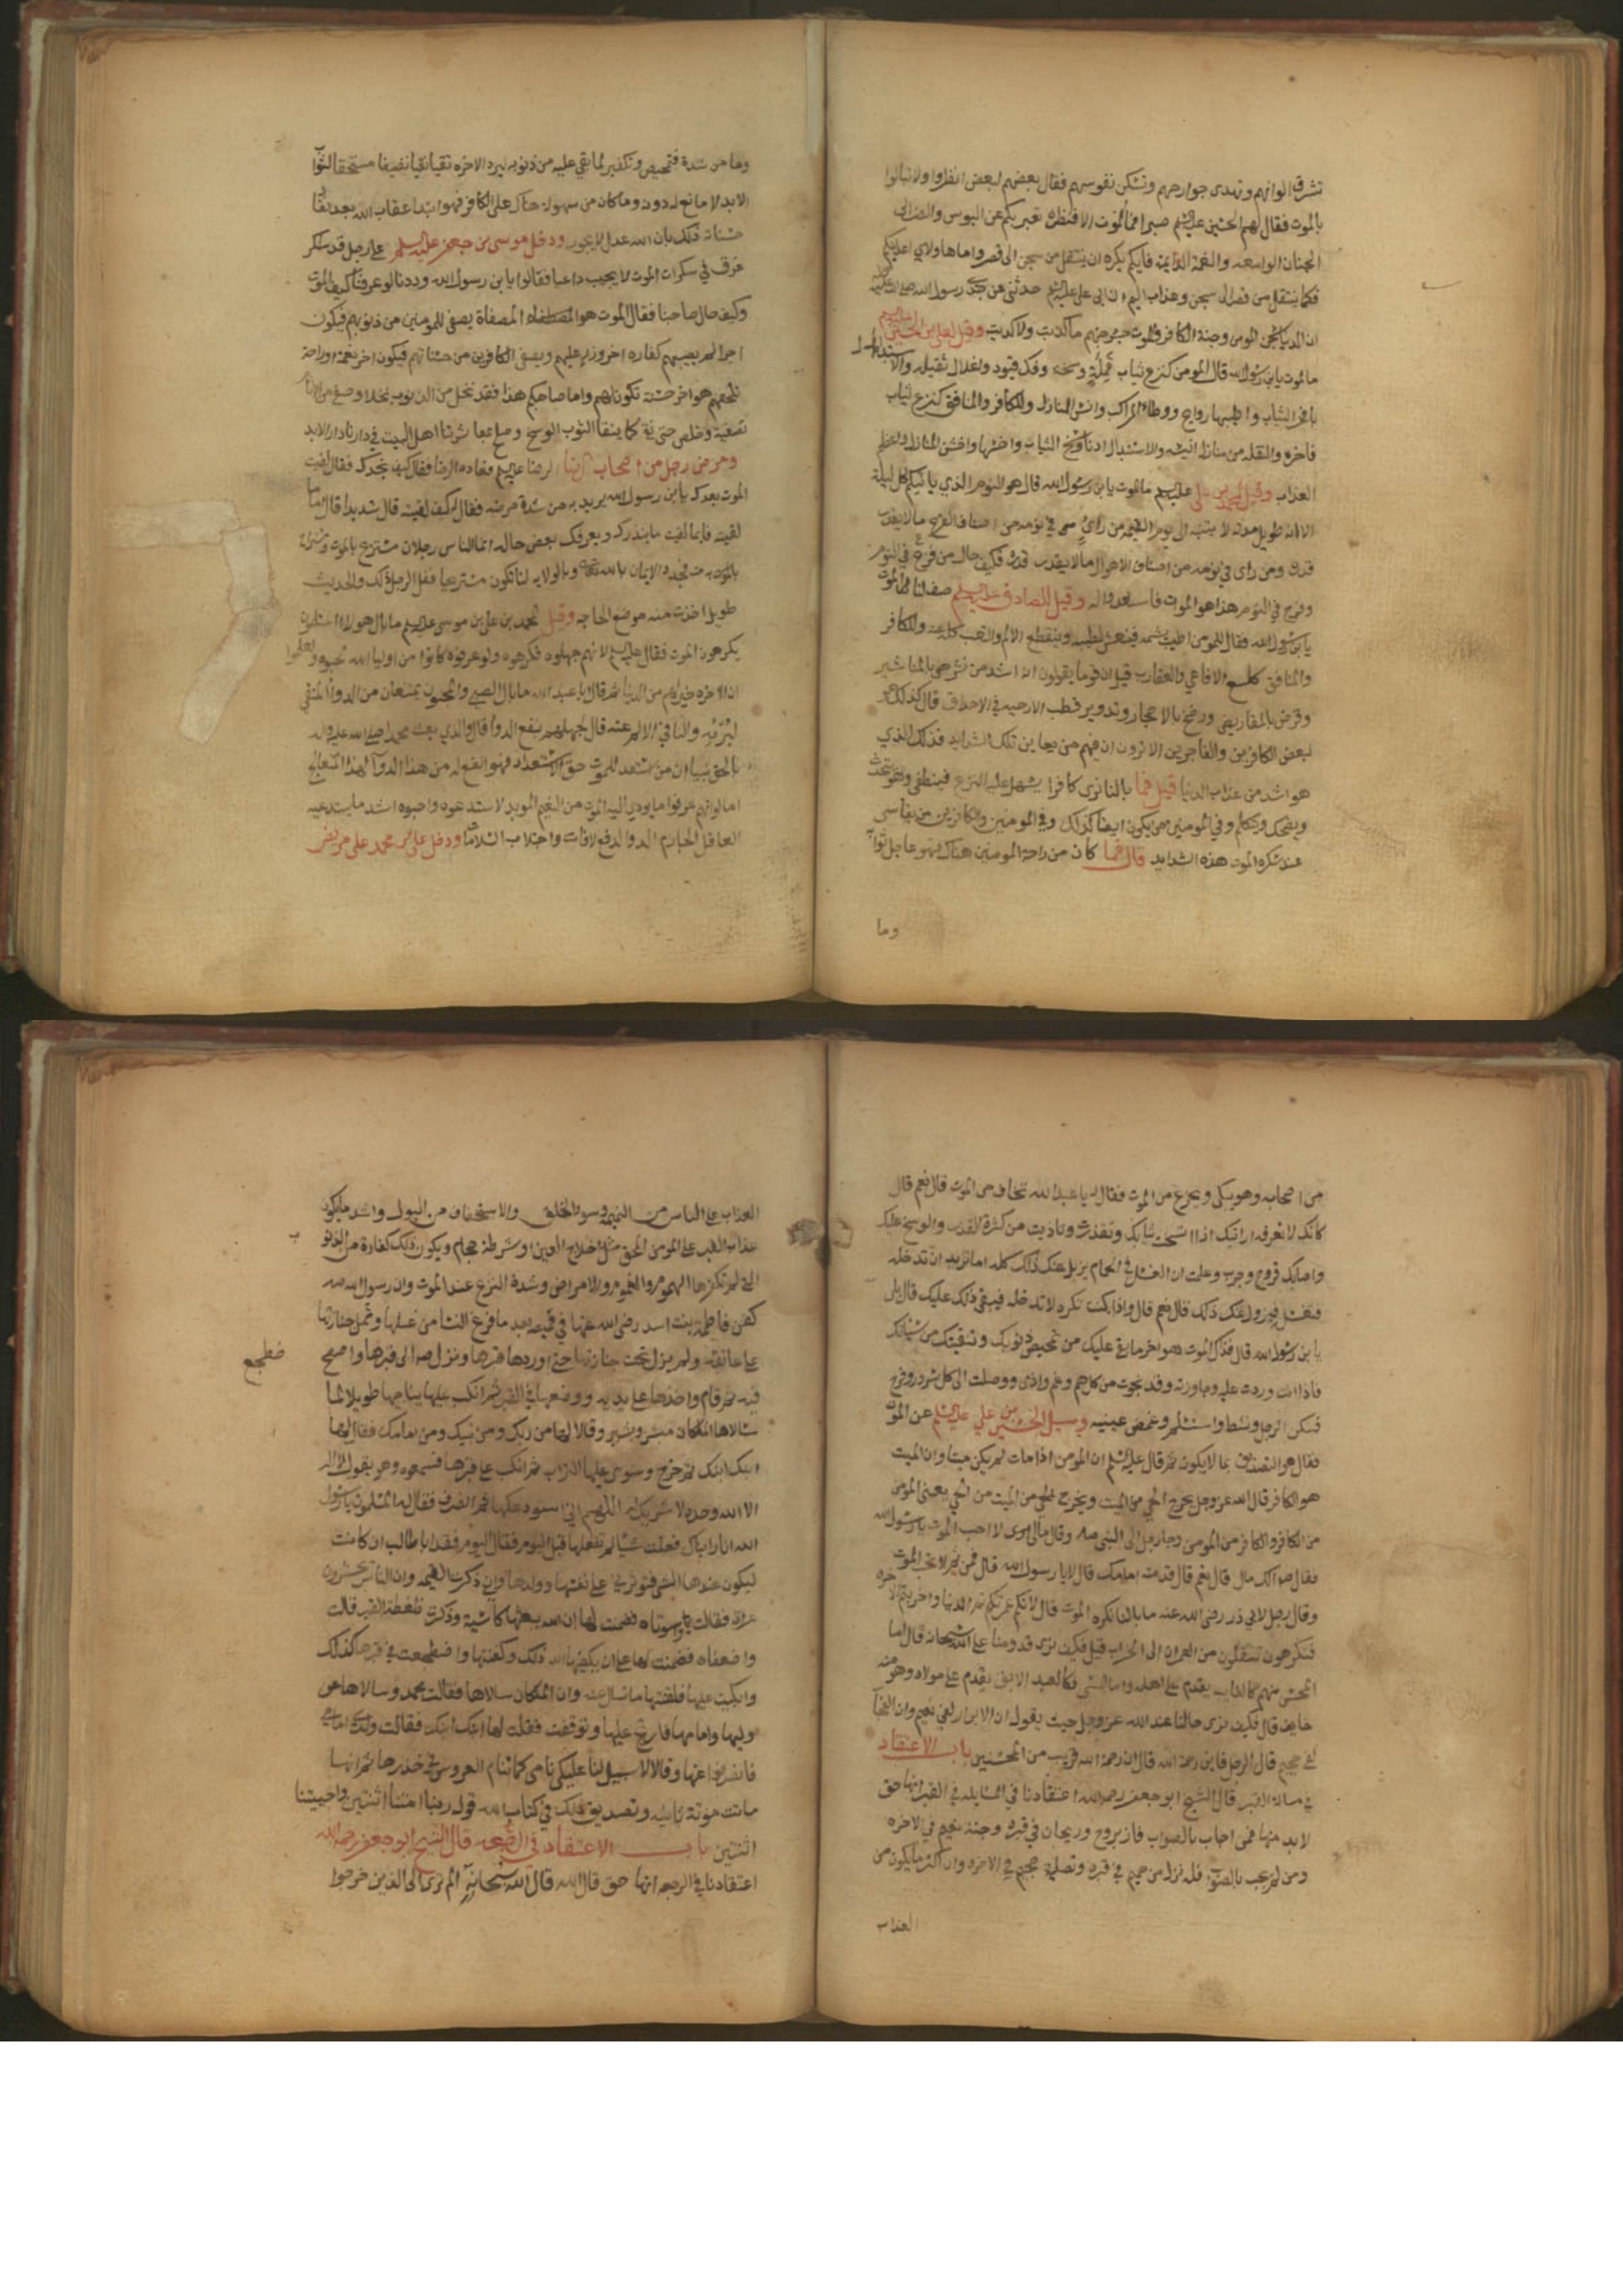 تشرق الوانهم وتهدى جوارحهم وتسكن نفوسهم فقال بعضهم لبعض انظروا ولا تبالوا
بالموت فقال لهم الحسين عليه السلم صبرا فما الموت الا قنطرة تعبر بكم عن البوس والضر الى
الجنان الواسعه والنعمة الدايمة فايكم يكره ان ينتقل من سجن الى قصر واما هاولاي اعدايكم
فكما ينتقل من قصر الى سجن وعذاب اليم ان ابي علي عليه السلم حدثني عن جدي رسول الله صلى الله عليه
ان الدنيا سجن المومن وجنة الكافر والموت جسر جهنم ما كذبت ولا كذبت وقيل لعلي بن الحسين عليهم
ما الموت يابن رسول الله قال المومن كنزع ثياب قملة وسخه وفك قيود واغلال ثقيله والاستبدال
بافخر الثياب واطيبها روايح ووطاء المراكب وانس المنازل وللكافر والمنافق كنزع ثياب
فاخره والنقله من منازل انيسه والاستبدال ادنا وسخ الثياب واخشنها واخشن المنازل واعظم
العذاب وقيل لمحمد بن علي عليه السلم ما الموت يابن رسول الله قال هو النوم الذي ياتيكم كل ليلة
الا انه طويل مدته لا ينتبه الى يوم القيمه من راى في نومه من اصناف الفرح ما لا يقدر
قدره ومن راى في نومه من اصناف الاهوال ما لا يقدر قدره فكيف حال من فرح في النوم
وفزع في النوم هذا هو الموت فاستعدوا له وقيل للصادق عليه السلم صف لنا الموت
يابن رسول الله فقال للمومن اطيب يشمه فينعس لطيبه وينقطع الالم والتعب كله عنه وللكافر
والمنافق كلسع الافاعي والعقارب قيل ان قوما يقولون انه اشد من نشر هو بالمناشير
وقرض بالمقاريض ورضخ بالاحجار وتدوير قطب الارحيه في الاحداق قال كذلك هو
لبعض الكافرين والفاجرين الا ترون ان منهم من يعاين تلك الشدايد فذلك الذي
هو اشد من عذاب الدنيا قيل فما بالنا نرى كافرا يسهل عليه النزع فينطفي وهو يتحدث
ويضحك ويتكلم وفي المومنين من يكون ايضا كذلك وفي المومنين والكافرين من يقاسي
عند سكرة الموت هذه الشدايد قال فما كان من راحة المومنين هناك فهو عاجل ثوابه
وما
وما من شدة فتمحيص وتكفير لما بقي عليه من ذنوبه ليرد الاخره نقيا نقيا نضيفا مستحقا لثواب
الابد لا مانع له دونه وما كان من سهولة هناك على الكافر فهو ابتدا عقاب الله بعد نفاد
حسناته ذلك بان الله عدل لا يجور ودخل موسى بن جعفر عليه السلم على رجل قد سكر
غرق في سكرات الموت لا يجيب داعيا فقالوا يابن رسول الله وددنا لو عرفنا كيف الموت
وكيف حال صاحبنا فقال الموت هو المصفاة يصفي المومنين من ذنوبهم فيكون
اخر الم يصيبهم كفارة اخر وزر عليهم ويصفي الكافرين من حسناتهم فيكون اخر نعمة اوراحة
تلحقهم هو اخر حسنة تكون لهم واما صاحبكم هذا فقد نخل من الذنوب نخلا وصفي من الاثام
تصفية وخلص حتى نقى كما ينقا الثوب الوسخ وصلح لمعاشرتنا اهل البيت في دارنا دار الابد
ومرض رجل من اصحاب الرضا عليه السلم فعاده الرضا فقال كيف تجدك فقال لقيت
الموت بعدك يابن رسول الله يريد به من شدة مرضه فقال كيف لقيته قال شديدا قال ما
لقيته فانما لقيت ما ينذرك ويعرفك بعض حاله انما الناس رجلان مستريح بالموت ومستراح
فجدد الايمان بالله وبالولايه لنا تكون مستريحا ففعل الرجل ذلك والحديث
طويل اخذت منه موضع الحاجه وقيل لمحمد بن علي بن موسى عليه السلم ما بال هولاء المسلمون
يكرهون الموت فقال عليه السلم لانهم جهلوه فكرهوه ولو عرفوه كانوا من اوليا الله لاحبوه ولعلموا
ان الاخره خير لهم من الدنيا ثم قال يا با عبد الله ما بال الصبي والمجنون يمتنعان من الدواء المنقي
لبدنه والنافي الالم عنه قال لجهلهم بنفع الدوا قال والذي بعث محمدا صلى الله عليه واله
بالحق نبيا ان من استعد للموت حق الاستعداد فهو انفع له من هذا الدوا لهذا المتعالج
اما لو انهم عرفوا ما يودي اليه الموت من النعيم الموبد لاستدعوه واحبوه اشد ما يستدعيه
العاقل الحازم الدوا لدفع الافات واجتلاب السلامات ودخل علي بن محمد على مريض
من اصحابه وهو يبكي ويجزع من الموت فقال له يا عبد الله تخاف من الموت قال نعم قال
كانك لا تعرفه ارايتك اذا اتسخت ثيابك وتقذرت وتاذيت من كثرة القذر والوسخ عليك
واصابك قروح وجرب وعلمت ان الغسل في الحمام يزيل عنك ذلك كله اما تريد ان تدخله
فتغتسل فيزول عنك ذلك قال نعم قال واذا كنت تكره لا تدخله فيبقى ذلك عليك قال بلى
يابن رسول الله قال فذاك الموت هو اخر ما بقي عليك من تمحيص ذنوبك وتنقيتك من سيئاتك
فاذا انت وردت عليه وجاورته وقد نجوت من كل هم وغم واذى ووصلت الى كل سرور وفرح
فسكن الرجل ونشط واستسلم وغمض عينيه وسيل الحسن بن علي عليه السلم عن الموت
فقال هو التصديق بما لا يكون ثم قال عليه السلم ان المومن اذا مات لم يكن ميتا وان الميت
هو الكافر قال الله عز وجل يخرج الحي من الميت ويخرج الميت من الحي يعني المومن
من الكافر والكافر من المومن وجا رجل الى النبي صلعم وقال مالي لا احب الموت يا رسول الله
فقال هو الك مال قال نعم قال قدمته امامك قال لا يا رسول الله قال فمن ثم لا تحب الموت
وقال رجل لابي ذر رضي الله عنه ما بالنا نكره الموت قال لانكم عمرتكم الدنيا واخربتم الاخرة
فتكرهون تنتقلون من العمران الى الخراب قيل فكيف ترى قدومنا على الله سبحانه قال اما
المحسن منهم كالغايب يقدم على اهله واما المسي فكالعبد الابق يقدم على مولاه وهو منه
خايف قال فكيف ترى حالنا عند الله عز وجل حيث يقول ان الابرار لفي نعيم وان الفجار
لفي جحيم قال الرجل فاين رحمة الله قال ان رحمة الله قريب من المحسنين باب الاعتقاد
في مسالة القبر قال الشيخ ابو جعفر رحمه الله اعتقادنا في المسايله في القبر انها حق
لا بد منها فمن اجاب بالصواب فاز بروح وريحان في قبره وجنة نعيم في الاخره
ومن لم يجب بالصواب فله نزل من حميم في قبره وتصلية جحيم في الاخره واكثر ما يكون من
العذاب
العذاب على الناس من النميمة وسو الخلق والاستخفاف من البول واشد ما يكون
عذاب القبر على المومن المحق مثل اختلاج العين او شرطة حجام ويكون ذلك كفارة من الذنوب
التي لم تكفرها الهموم والغموم والامراض وشدة النزع عند الموت وان رسول الله صلعم
كفن فاطمة بنت اسد رضي الله عنها في قميصه بعد ما فرغ النسا من غسلها وحمل جنازتها
على عاتقه ولم يزل تحت جنازتها حتى اوردها قبرها ونزل صلعم الى قبرها واضجع
ضطجع
فيه ثم قام واخذها على يديه ووضعها في القبر ثم انكب عليها يناجيها طويلا لما
سالاها الملكان مبشر وبشير وقالا لها من ربك ومن نبيك ومن امامك فقال لها
ابنك ابنك ثم خرج وسوى عليها التراب ثم انكب على قبرها فسمعوه وهو يقول لا اله
الا الله وحده لا شريك له اللهم اني استودعكها ثم انصرف فقال له المسلمون يا رسول
الله انا رايناك فعلت شيئا لم تفعلها قبل اليوم فقال اليوم فقد ابا طالب ان كانت
ليكون عندها الشي فتوثرني على نفسها وولدها واني ذكرت القيمه وان الناس يحشرون
عراة فقالت واسوتاه فضمنت لها ان الله يبعثها كاسية وذكرت ضغطة القبر فقالت
واضعفاه فضمنت لها على ان يكفيها الله ذلك وكفنتها واضطجعت في قبرها كذلك
وانكبت عليها فلقنتها ما تسال عنه وان الملكان سالاها فقالت محمد وسالاها عن
وليها وامامها فارتج عليها وتوقفت فقلت لها ابنك ابنك فقالت ولدي امامي
فانصرفا عنها وقالا لا سبيل لنا عليك نامي كما تنام العروس في خدرها ثم انها
ماتت موتة ثانيه وتصديق ذلك في كتاب الله قوله ربنا امتنا اثنتين واحييتنا
اثنتين باب الاعتقاد في الرجعه قال الشيخ ابو جعفر رحمه الله
اعتقادنا في الرجعه انها حق قال الله قال الله سبحانه الم تر الى الذين خرجوا